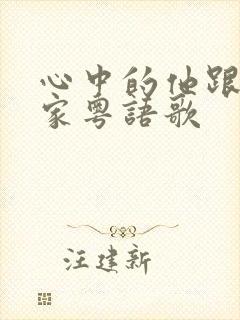 心中的他跟
家粤語歌
汪建新